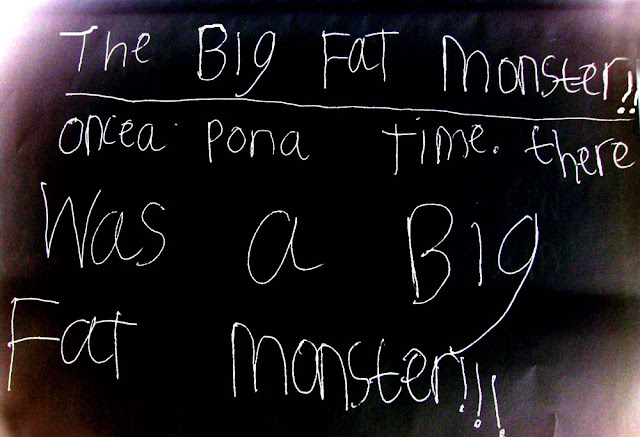 The Big Fat Monster!!
oncea pona time. there
Was a Big
Fat monster!!!